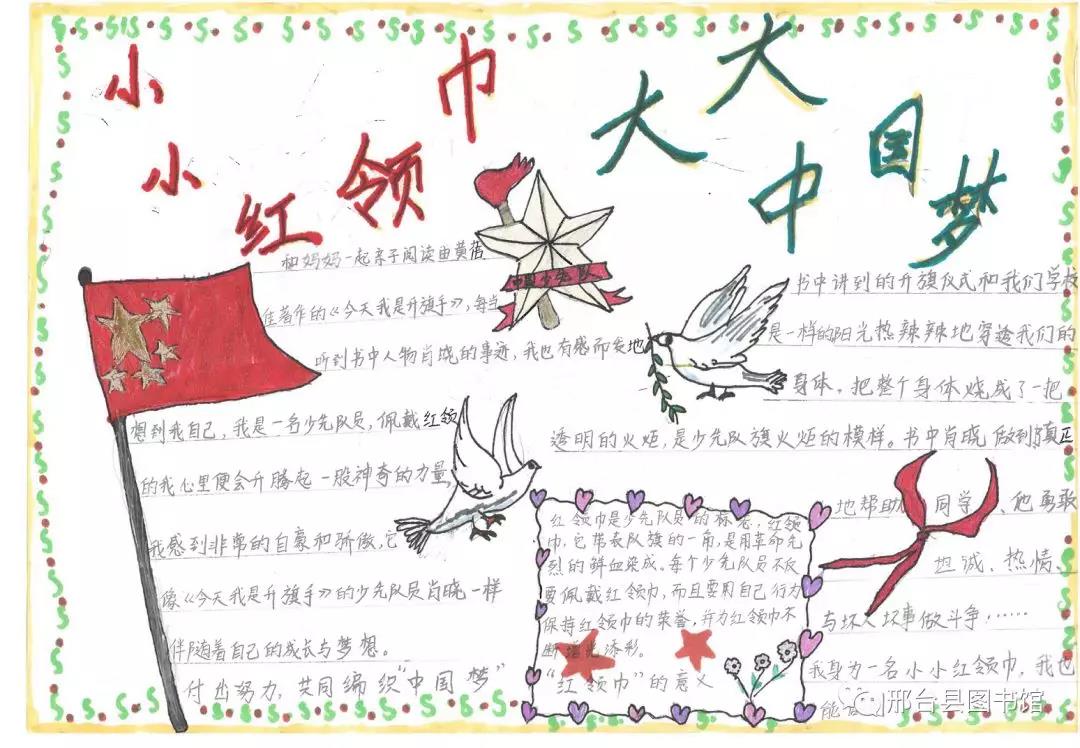 小小红领巾
大大中国梦
中国少先队
和妈妈一起亲子阅读由黄蓓
佳著作的《今天我是升旗手》，每当
听到书中人物肖晓的事迹，我也有感而发地
想到我自己，我是一名少先队员，佩戴红领
的我心里便会升腾起一股神奇的力量，
我感到非常的自豪和骄傲，它
像《今天我是升旗手》的少先队员肖晓一样
伴随着自己的成长与梦想。
书中讲到的升旗仪式和我们学校
是一样的阳光热辣辣地穿透我们的
身体，把整个身体烧成了一把
透明的火炬，是少先队旗火炬的模样。书中肖晓做到了真正
地帮助同学、他勇敢
坦诚、热情、
与坏人坏事做斗争……
我身为一名小小红领巾，我也
能
付出努力，共同编织“中国梦”
红领巾是少先队员的标志，红领
巾，它带表队旗的一角，是用革命先
烈的鲜血染成。每个少先队员不仅
要佩戴红领巾，而且要用自己行为
保持红领巾的荣誉，并为红领巾不
断增光添彩。
“红领巾”的意义
邢台县图书馆